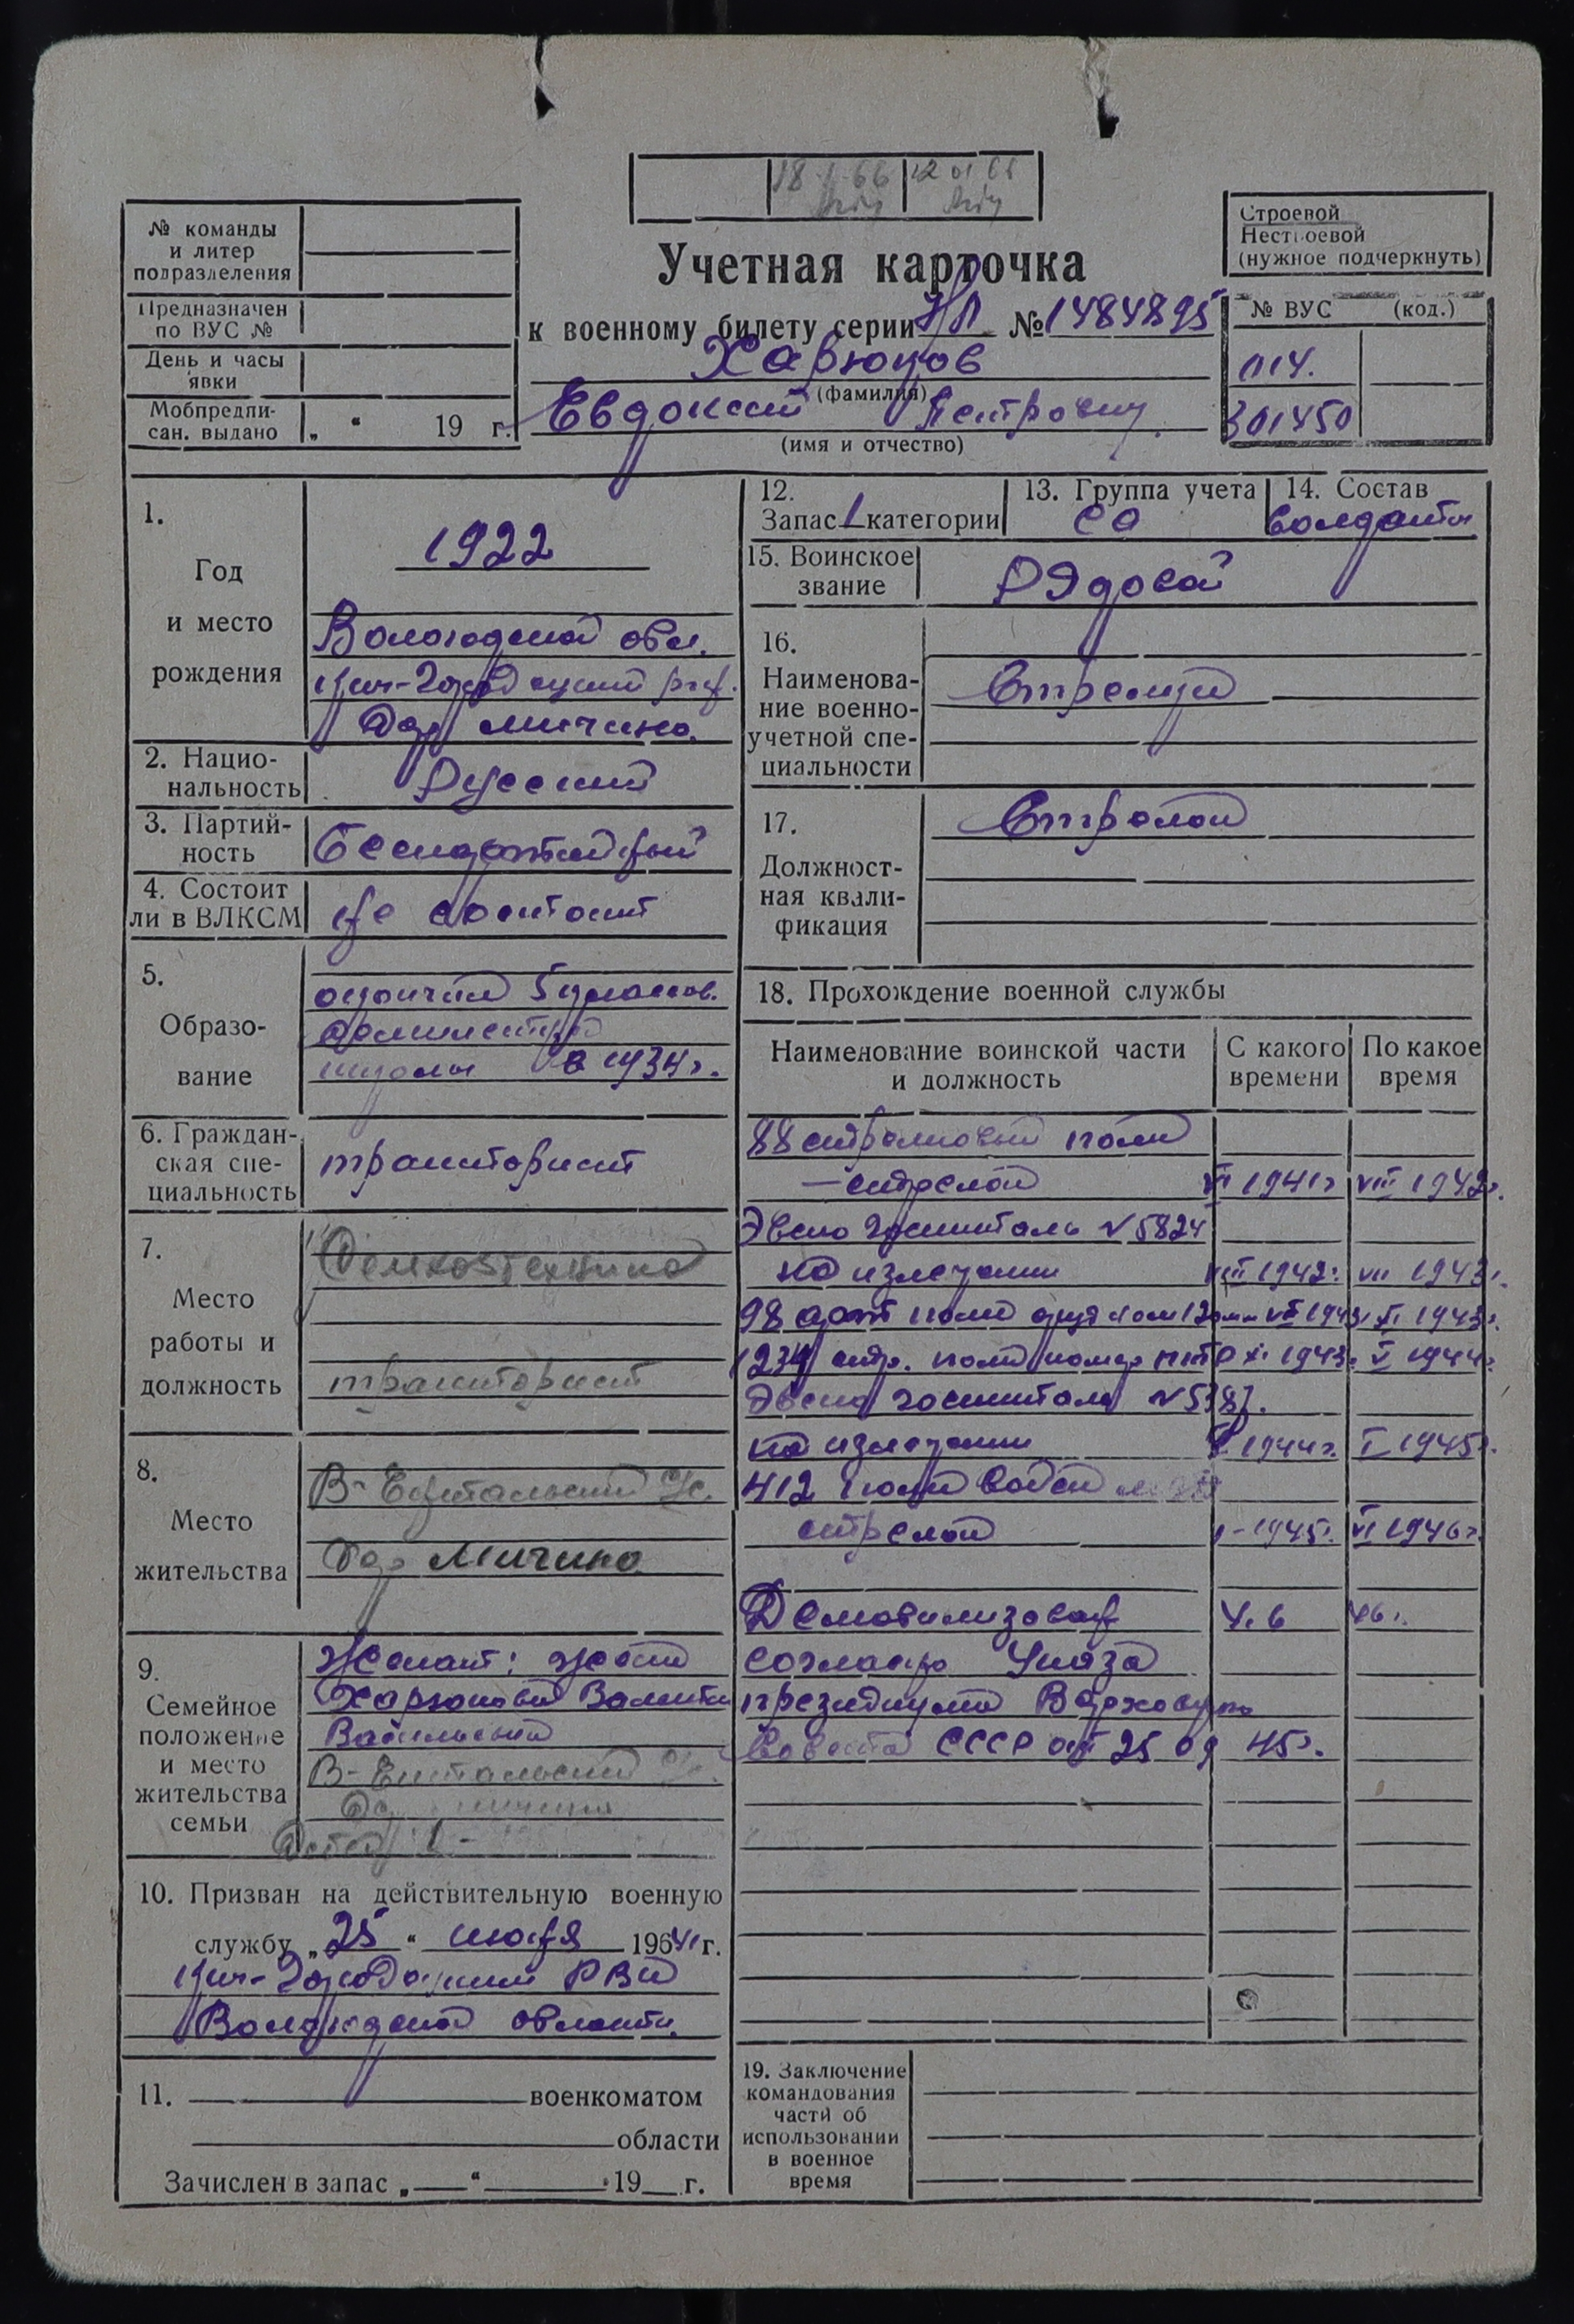 18 1 66
12 01 65
№ команды
и литер
подразделения
Предназначен
по ВУС №
День и часы
явки
Мобпредпи-
сан. выдано „ “ 19 г.
Строевой
Нестроевой
(нужное подчеркнуть)
Учетная карточка
к военному билету серии НЛ №1484895
№ ВУС (код.)
Харюков
(фамилия)
Евдоким Петрович
(имя и отчество)
014.
301450
1.
Год
и место
рождения
1922
Вологодской обл.
Кич-Городецкий
дер Мичино.
2. Нацио-
нальность
Русский
3. Партий-
ность
Беспартийный
4. Состоит
ли в ВЛКСМ
не состоит
5.
Образо-
вание
окончил 5 классов.
школы в 1934г.
6. Граждан-
ская спе-
циальность
тракторист
7.
Место
работы и
должность
Сельхозтехника
тракторист
8.
Место
жительства
В-Ентальский с/с.
дер Мичино
9.
Семейное
положение
и место
жительства
семьи
Женат: жена
Харюкова
Васильевна
В-Ентальский с/с.
дер Мичино
Детей 1 -
10. Призван на действительную военную
службу „25“ июня 1941 г.
Кич-Городецким РВК
Вологодской области.
11. военкоматом
области
Зачислен в запас „ “ 19 г.
12.
Запас 1 категории
13. Группа учета
СА
14. Состав
солдаты
15. Воинское
звание
Рядовой
16.
Наименова-
ние военно-
учетной спе-
циальности
Стрелки
17.
Должност-
ная квали-
фикация
Стрелок
18. Прохождение военной службы
Наименование воинской части
и должность
С какого
времени
По какое
время
88 стрелковый полк
— стрелок VI 1941г VIII 1942г.
Эвако госпиталь №5824
на излечении VIII 1942г. VII 1943г.
98 арт полк 120мм VII 1943г XI 1943г.
1234 стр. полк номер ПТР XI 1943г. V 1944г.
Эвако госпиталь №5387.
на излечении V 1944г. I 1945г.
412 полк
стрелок I-1945г. VI 1946г.
Демобилизован 4. 6 46г.
согласно Указа
президиума Верховного
Совета СССР от 25 09 45г.
19. Заключение
командования
части об
использовании
в военное
время